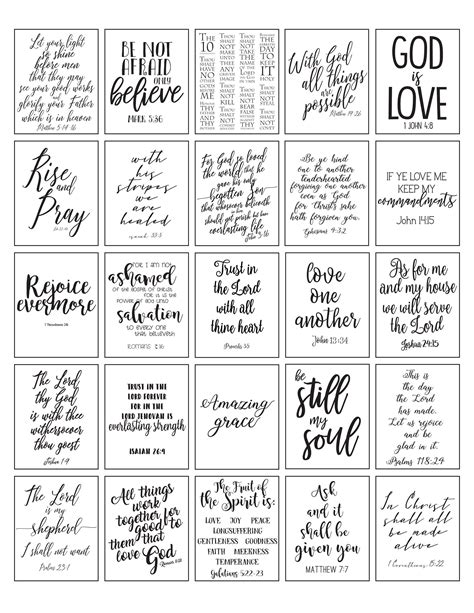 Let your light so
shine before
men that they may
see your good works
glorify your Father
which is in heaven
Matthew 5:14-16
BE NOT
AFRAID
ONLY
believe
MARK 5:36
THE
10
With God
all things
are
possible
Matthew 19:26
GOD
is
LOVE
1 JOHN 4:8
Rise
and
Pray
with
his
stripes
we
are
healed
Isaiah 53:5
For God so loved
the world that he
gave his only
begotten Son
that whosoever believeth
in him
should not perish but have
everlasting life
John 3:16
Be ye kind
one to another
tenderhearted
forgiving one another
even as God
for Christ's sake
hath forgiven you.
Ephesians 4:32
IF YE LOVE ME
KEEP MY
commandments
John 14:15
Rejoice
evermore
FOR I AM NOT
ashamed
OF THE GOSPEL OF CHRIST:
FOR IT IS THE
POWER OF GOD UNTO
salvation
TO EVERY ONE
THAT BELIEVETH
ROMANS 1:16
Trust in
the Lord
with all
thine heart
Proverbs 3:5
love
one
another
John 13:34
As for me
and my house
we will
serve the
Lord
Joshua 24:15
The Lord
thy God
is with thee
whithersoever
thou goest
Joshua 1:9
TRUST IN THE
LORD FOREVER
FOR IN THE
LORD JEHOVAH IS
everlasting strength
ISAIAH 26:4
Amazing
grace
be
still
my
soul
This is
the day
the Lord
has made.
Let us rejoice
and be
glad in it.
Psalms 118:24
The Lord
is my
shepherd
I shall not want
Psalms 23:1
All things
work
together for
good to
them that
love God
Romans 8:28
The Fruit of
the Spirit is:
LOVE JOY PEACE
LONGSUFFERING
GENTLENESS GOODNESS
FAITH MEEKNESS
TEMPERANCE
Galatians 5:22-23
Ask
and it
shall be
given you
MATTHEW 7:7
In Christ
shall all
be made
alive
1 Corinthians 15:22